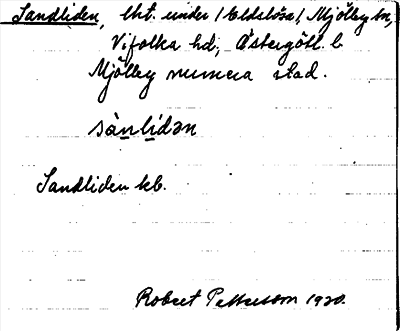 Sandliden, lht. under /Veldslösa/, Mjölby sn,
Vifolka hd, Östergötl. l.
Mjölby numera stad.
sànlidən
Sandliden kb.
Robert Pettersson 1920.